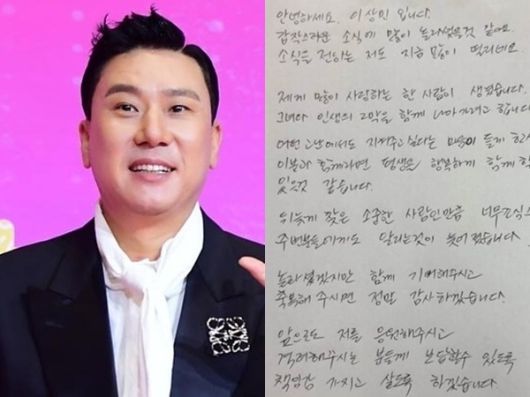 안녕하세요. 이상민 입니다.
갑작스러운 소식에 많이 놀라셨을것 같아요.
소식을 전하는 저도 지금 많이 떨리네요.
제게 많이 사랑하는 한 사람이 생겼습니다.
그녀와 인생의 2막을 함께 나아가려고 합니다
어떤 고난에서도 지켜주고 싶다는 마음이 들게 하
이분과 함께라면 평생을 행복하게 함께
있을것 같습니다.
뒤늦게 찾은 소중한 사람인만큼 너무 조심스
주변분들에게도 알리는것이 늦어졌습니다.
놀라셨겠지만 함께 기뻐해주시고
축복해 주시면 정말 감사하겠습니다.
앞으로도 저를 응원해주시고
격려해주시는 분들께 보답할수 있도록
책임감 가지고 살도록 하겠습니다